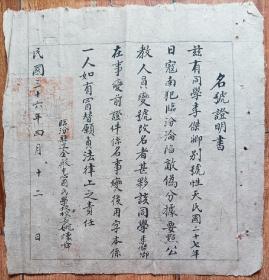 名號證明書
茲有同學李傑卿別號性天民國二十七年
日寇南犯臨汾淪陷敵偽分據要點公
教人員變號改名者甚夥該同學李傑卿
在事變前證件係名事變後用字本係
一人如有冒替願負法律上之責任
臨汾縣金殿中心國民學校校長
民國三十六年四月十二日